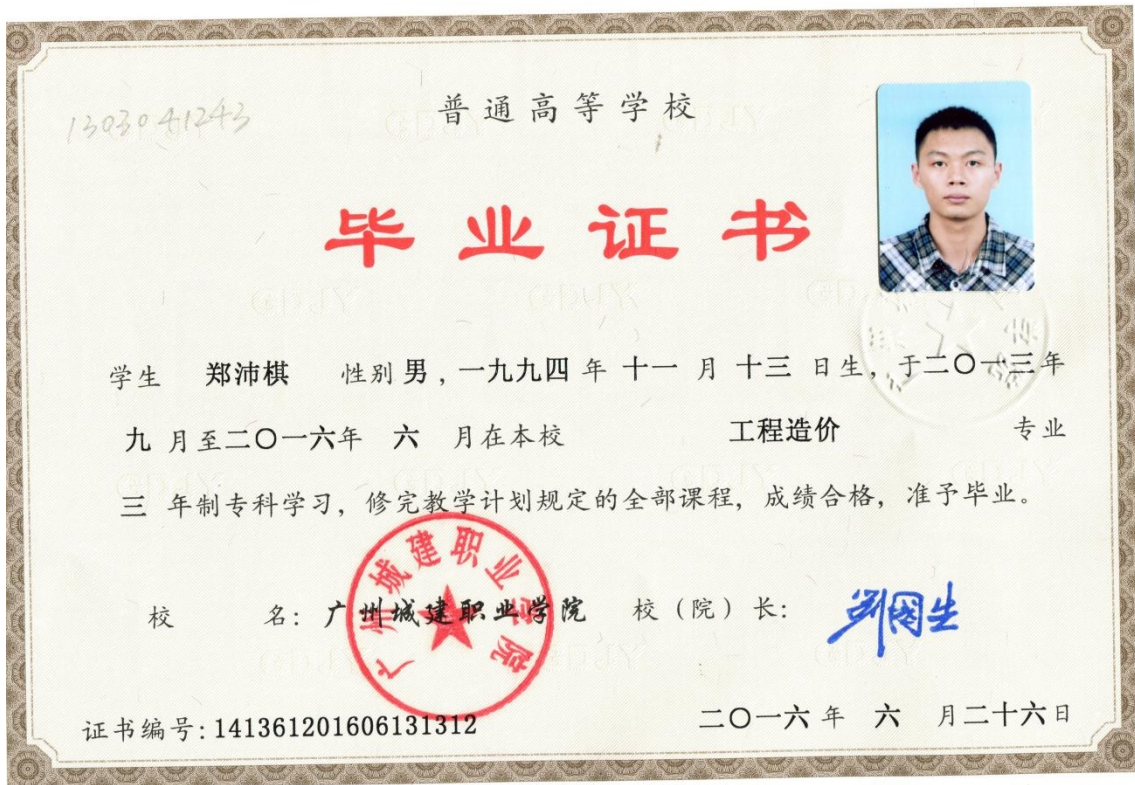 1303041243
普通高等学校
毕业证书
学生 郑沛棋 性别 男，一九九四 年 十一 月 十三 日生，于二〇一三年
九 月至二〇一六年 六 月在本校 工程造价 专业
三 年制专科学习，修完教学计划规定的全部课程，成绩合格，准予毕业。
校 名：广州城建职业学院 校（院）长：
广州城建职业学院
证书编号：141361201606131312 二〇一六 年 六 月二十六日